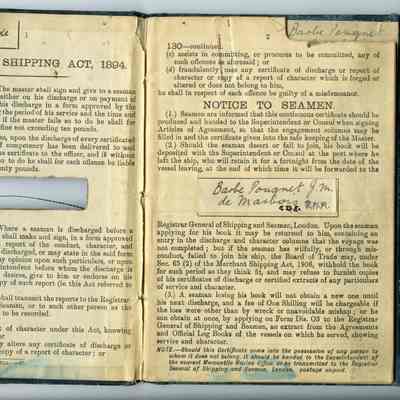 1
SHIPPING ACT, 1894.
The master shall sign and give to a seaman
either on his discharge or on payment of
his discharge in a form approved by the
the period of his service and the time and
if the master fails so to do he shall for
fine not exceeding ten pounds.
upon the discharge of every certificated
of competency has been delivered to and
certificate to the officer, and if without
so to do he shall for each offence be liable
twenty pounds.
Where a seaman is discharged before a
shall make and sign, in a form approved
report of the conduct, character, and
discharged, or may state in the said form
opinion upon such particulars, or upon
superintendent before whom the discharge is
desires, give to him or endorse on his
copy of such report (in this Act referred to
shall transmit the reports to the Registrar
Seamen, or to such other person as the
to be recorded.
of character under this Act, knowing
or
alters any certificate of discharge or
copy of a report of character; or
2
Barbe Pougnet
180—continued.
(c) assists in committing, or procures to be committed, any of
such offences as aforesaid; or
(d) fraudulently uses any certificate of discharge or report of
character or copy of a report of character which is forged or
altered or does not belong to him,
he shall in respect of each offence be guilty of a misdemeanour.
NOTICE TO SEAMEN.
(1.) Seamen are informed that this continuous certificate should be
produced and handed to the Superintendent or Consul when signing
Articles of Agreement, so that the engagement columns may be
filled in and the certificate given into the safe keeping of the Master.
(2.) Should the seaman desert or fail to join, his book will be
deposited with the Superintendent or Consul at the port where he
left the ship, who will retain it for a fortnight from the date of the
vessel leaving, at the end of which time it will be forwarded to the
Barbe Pougnet J.M.
de Marbois
Registrar General of Shipping and Seamen, London. Upon the seaman
applying for the book it may be returned to him, containing an
entry in the discharge and character columns that the voyage was
not completed; but if the seaman has wilfully, or through mis-
conduct, failed to join his ship, the Board of Trade may, under
Sec. 65 (2) of the Merchant Shipping Act, 1906, withhold the book
for such period as they think fit, and may refuse to furnish copies
of his certificates of discharge or certified extracts of any particulars
of service and character.
(3.) A seaman losing his book will not obtain a new one until
his next discharge, and a fee of One Shilling will be chargeable if
the loss were other than by wreck or unavoidable mishap; or he
can obtain at once, by applying on Form Dis. O3 to the Registrar
General of Shipping and Seamen, an extract from the Agreements
and Official Log Books of the vessels on which he served, showing
service and character.
NOTE.—Should this Certificate come into the possession of any person to
whom it does not belong, it should be handed to the Superintendent of
the nearest Mercantile Marine Office or be transmitted to the Registrar
General of Shipping and Seamen, London, postage unpaid.